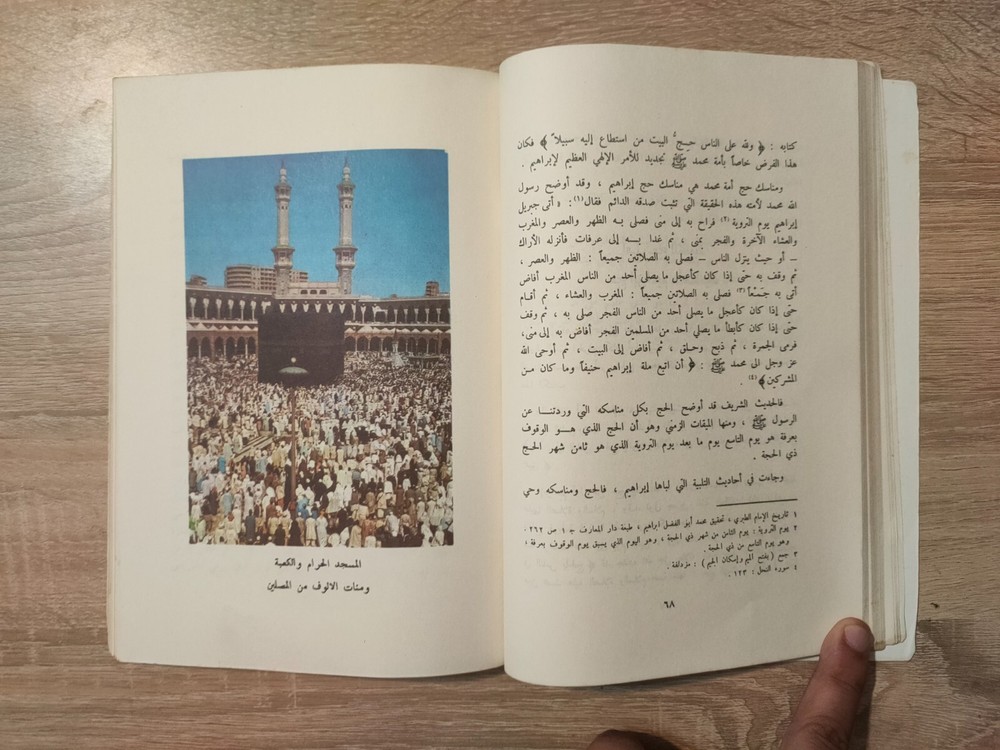 كتابه : ﴿ ولله على الناس حِجُّ البيت من استطاع إليه سبيلاً ﴾ فكان
هذا الفرض خاصاً بأمة محمد ﷺ تجديد للأمر الإلهي العظيم لإبراهيم .
ومناسك حج أمة محمد هي مناسك حج إبراهيم ، وقد أوضح رسول
الله محمد لأمته هذه الحقيقة التي تثبت صدقه الدائم فقال(١) : « أتى جبريل
إبراهيم يوم التروية (٢) فراح به إلى منى فصلى به الظهر والعصر والمغرب
والعشاء الآخرة والفجر بمنى ، ثم غدا به إلى عرفات فأنزله الأراك
ــ أو حيث ينزل الناس ــ فصلى به الصلاتين جميعاً : الظهر والعصر ،
ثم وقف به حتى إذا كان كأعجل ما يصلي أحد من الناس المغرب أفاض
أتى به جَمْعاً(٣) فصلى به الصلاتين جميعاً : المغرب والعشاء ، ثم أقام
حتى إذا كان كأعجل ما يصلي أحد من الناس الفجر صلى به ، ثم وقف
حتى إذا كان كأبطأ ما يصلي أحد من المسلمين الفجر أفاض به إلى منى،
فرمى الجمرة ، ثم ذبح وحلق ، ثم أفاض إلى البيت ، ثم أوحى الله
عز وجل الى محمد ﷺ : ﴿ أن اتبع ملة إبراهيم حنيفاً وما كان من
المشركين﴾(٤) .
فالحديث الشريف قد أوضح الحج بكل مناسكه التي وردتنا عن
الرسول ﷺ ، ومنها الميقات الزمني وهو أن الحج الذي هو الوقوف
بعرفة هو يوم التاسع يوم ما بعد يوم التروية الذي هو ثامن شهر الحج
ذي الحجة .
وجاءت في أحاديث التلبية التي لباها إبراهيم ، فالحج ومناسكه وحي
١ تاريخ الإمام الطبري ، تحقيق محمد أبو الفضل ابراهيم ، طبعة دار المعارف ج ١ ص ٢٦٢ .
٢ يوم التروية : يوم الثامن من شهر ذي الحجة ، وهو اليوم الذي يسبق يوم الوقوف بعرفة ،
وهو يوم التاسع من ذي الحجة .
٣ جمع ( بفتح الميم وإمكان الجيم ) : مزدلفة .
٤ سورة النحل : ١٢٣ .
٦٨
المسجد الحرام والكعبة
ومئات الألوف من المصلين